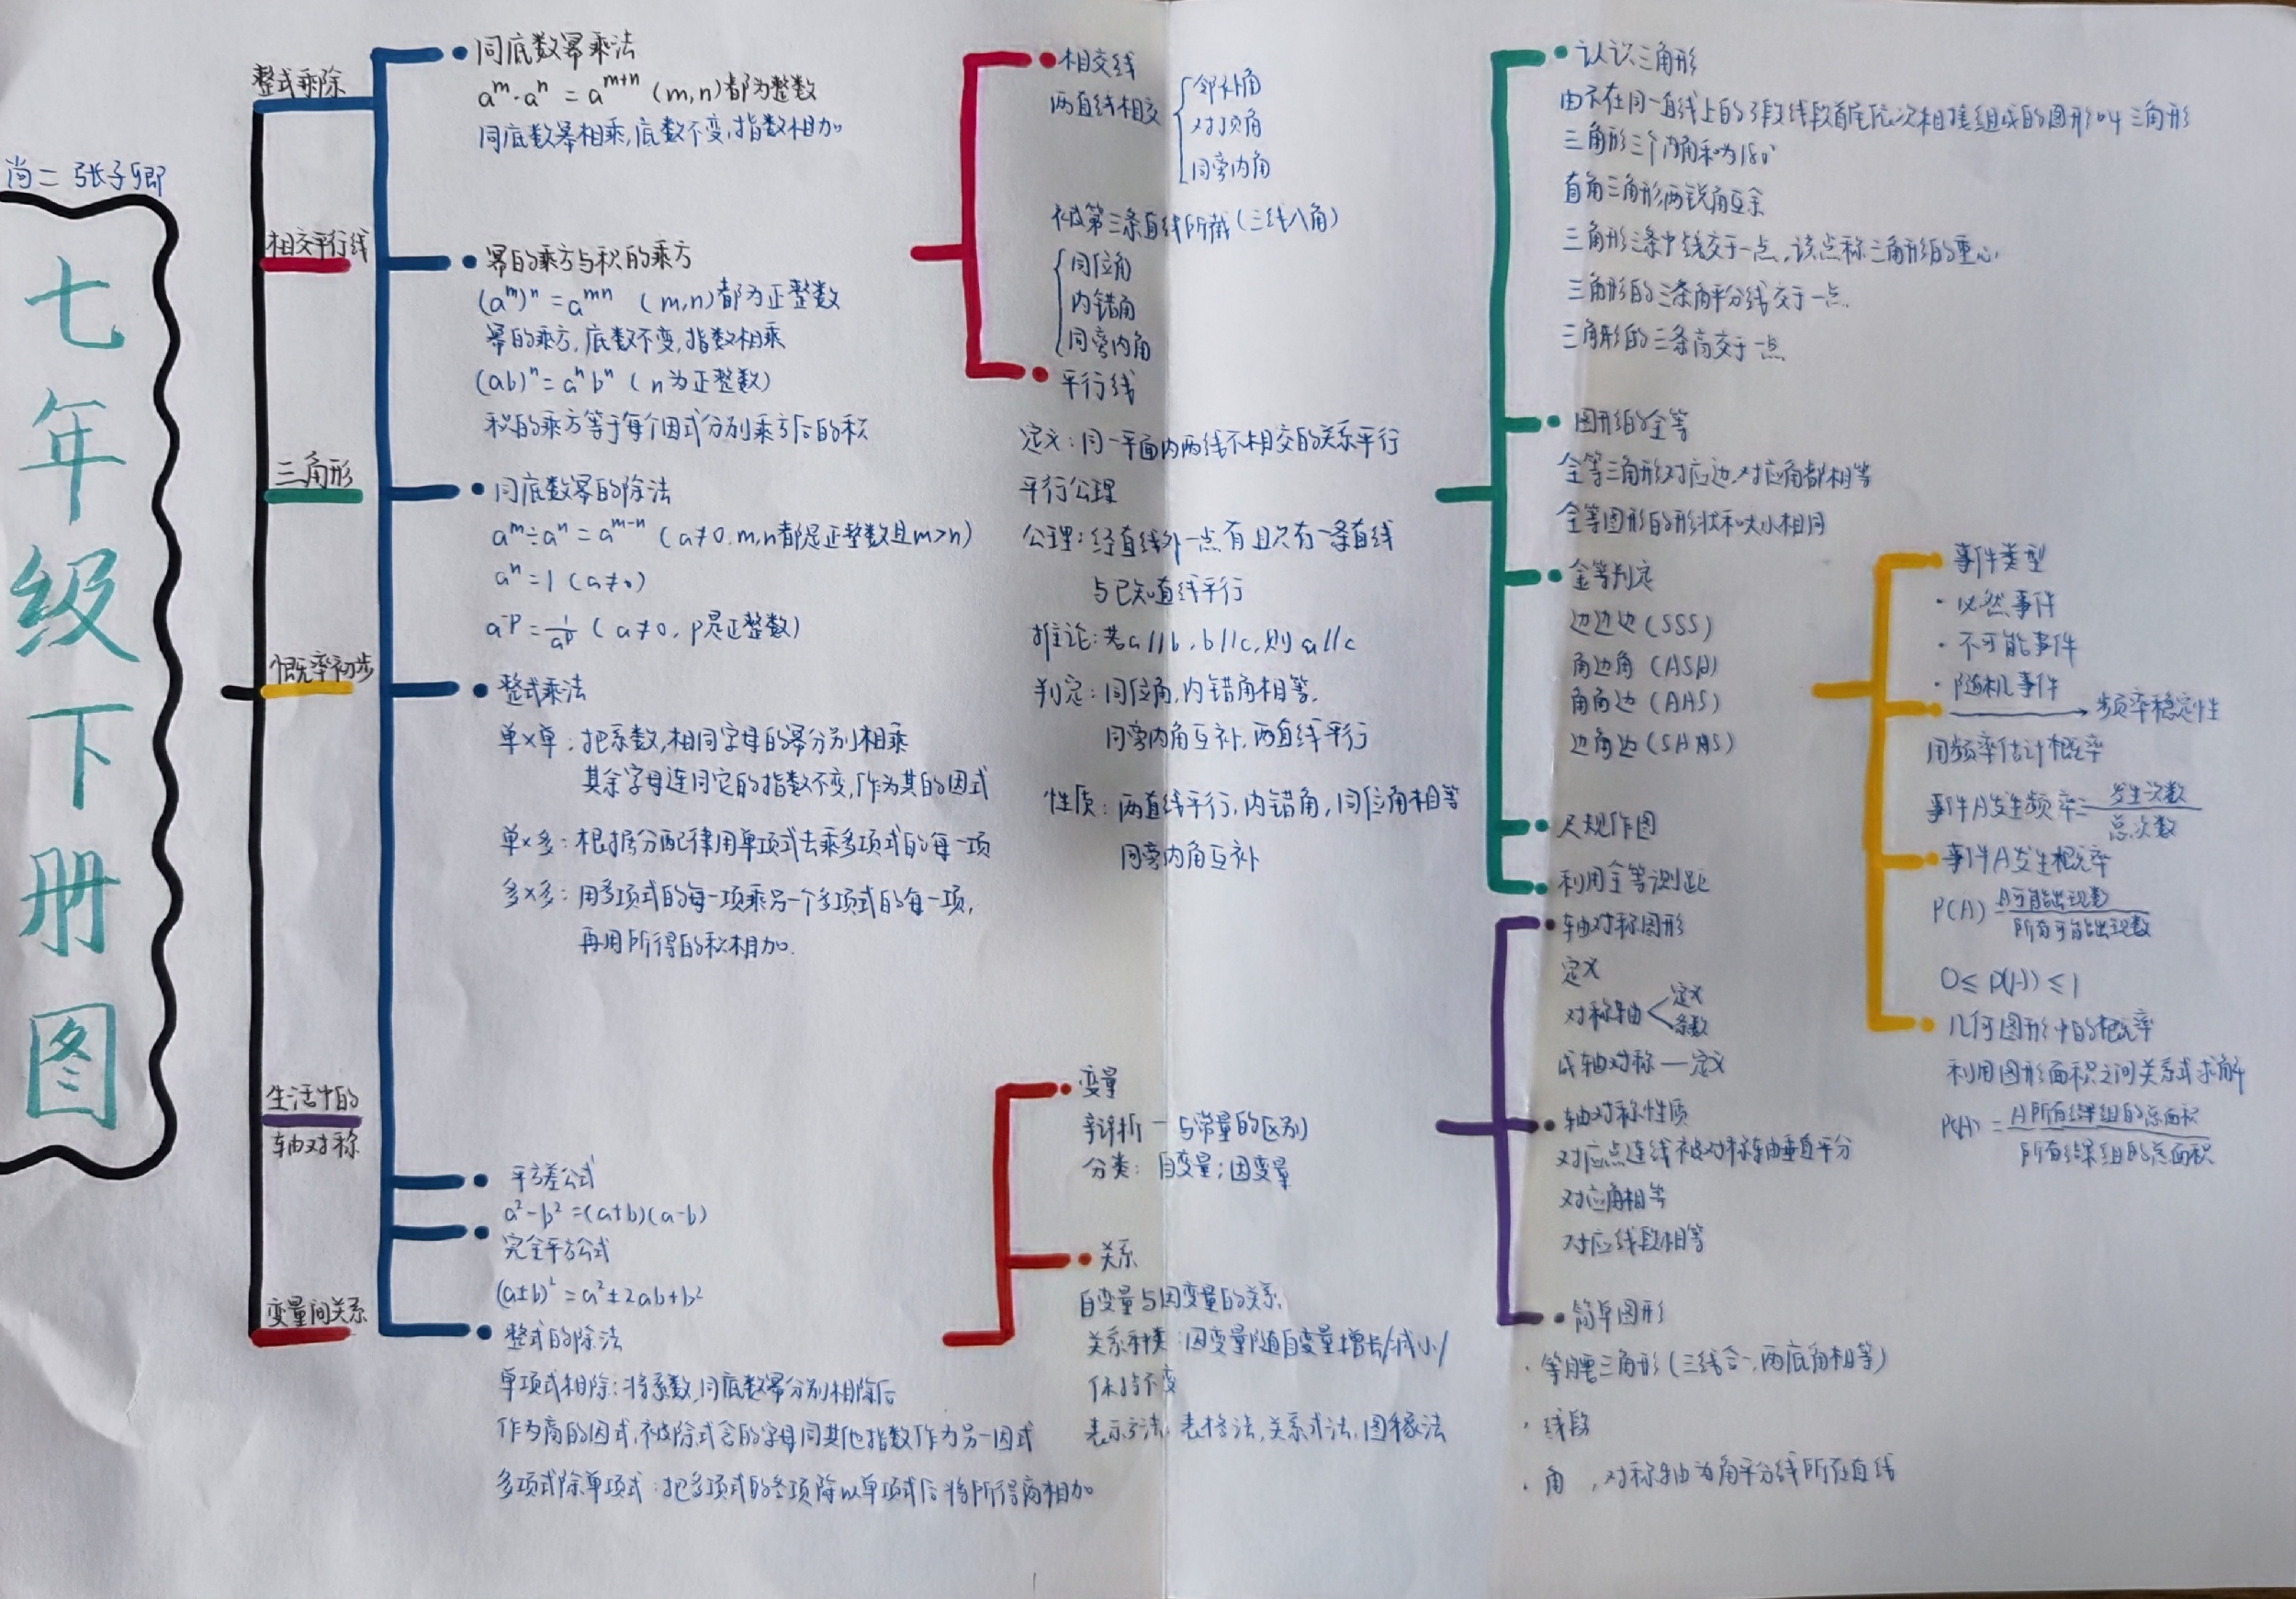 七年级下册图
尚二 张子卿
整式乘除
相交平行线
三角形
概率初步
生活中的
轴对称
变量间关系
同底数幂乘法
a^m·a^n=a^{m+n} (m,n)都为整数
同底数幂相乘,底数不变,指数相加
幂的乘方与积的乘方
(a^m)^n=a^{mn} (m,n)都为正整数
幂的乘方,底数不变,指数相乘
(ab)^n=a^n b^n (n为正整数)
积的乘方等于每个因式分别乘方后的积
同底数幂的除法
a^m÷a^n=a^{m-n} (a≠0.m,n都是正整数且m>n)
a^n=1 (a≠0)
a^{-p}=1/a^p (a≠0, p是正整数)
整式乘法
单×单:把系数,相同字母的幂分别相乘
其余字母连同它的指数不变,作为其的因式
单×多:根据分配律用单项式去乘多项式的每一项
多×多:用多项式的每一项乘另一个多项式的每一项,
再用所得的积相加.
平方差公式
a²-b²=(a+b)(a-b)
完全平方公式
(a±b)²=a²±2ab+b²
整式的除法
单项式相除:将系数,同底数幂分别相除后
作为商的因式,被除式含的字母同其他指数作为另一因式
多项式除单项式:把多项式的各项除以单项式后将所得商相加
相交线
两直线相交
邻补角
对顶角
同旁内角
被第三条直线所截(三线八角)
同位角
内错角
同旁内角
平行线
定义:同一平面内两线不相交的关系平行
平行公理
公理:经直线外一点有且只有一条直线
与已知直线平行
推论:若a//b,b//c,则a//c
判定:同位角,内错角相等,
同旁内角互补,两直线平行
性质:两直线平行,内错角,同位角相等
同旁内角互补
变量
辩析一与常量的区别
分类: 自变量;因变量
关系
自变量与因变量的关系,
关系种类:因变量随自变量增长/减小/
保持不变
表示方法:表格法,关系式法,图像法
认识三角形
由不在同一直线上的3段线段首尾依次相接组成的图形叫三角形
三角形三个内角和为180°
直角三角形两锐角互余
三角形三条中线交于一点,该点称三角形的重心,
三角形的三条角平分线交于一点.
三角形的三条高交于一点
图形的全等
全等三角形对应边,对应角都相等
全等图形的形状和大小相同
全等判定
边边边(SSS)
角边角(ASA)
角角边(AAS)
边角边(SAS)
尺规作图
利用全等测距
轴对称图形
定义
对称轴<定义
条数
成轴对称—定义
轴对称性质
对应点连线被对称轴垂直平分
对应角相等
对应线段相等
简单图形
·等腰三角形(三线合一,两底角相等)
·线段
·角 ,对称轴为角平分线所在直线
事件类型
·必然事件
·不可能事件
·随机事件
频率稳定性
用频率估计概率
事件A发生频率=发生次数/总次数
事件A发生概率
P(A)=A可能出现数/所有可能出现数
0≤P(A)≤1
几何图形中的概率
利用图形面积之间关系式求解
P(A)=A所有结果组的总面积/所有结果组的总面积